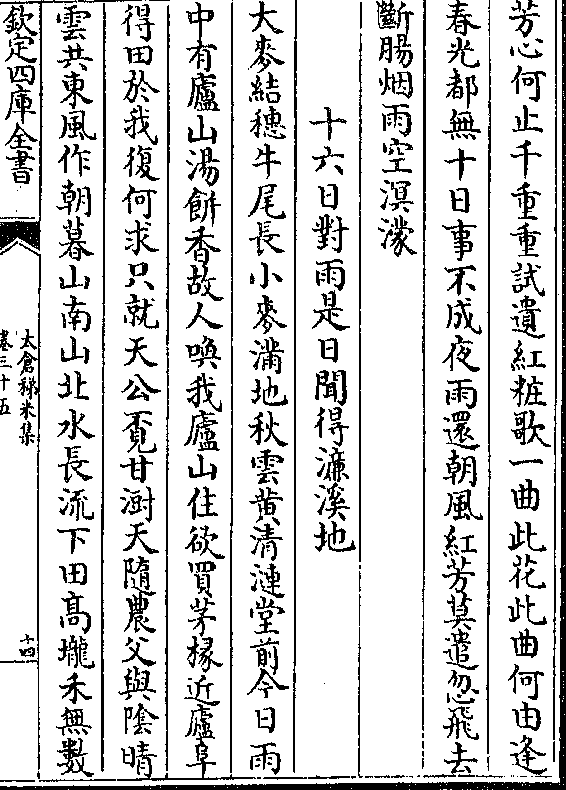 芳心何止千重重試遣紅粧歌一曲此花此曲何由逢
春光都無十日事不成夜雨還朝風紅芳莫遣忽飛去
斷腸烟雨空溟濛
十六日對雨是日聞得濂溪地
大麥結穗牛尾長小麥滿地秋雲黄清漣堂前今日雨
中有廬山湯餅香故人喚我廬山住欲買茅椽近廬阜
得田於我復何求只就天公覔甘澍天隨農父與陰晴
雲共東風作朝暮山南山北水長流下田髙壠禾無數
欽定四庫全書
太倉稊米集
卷三十五
十四